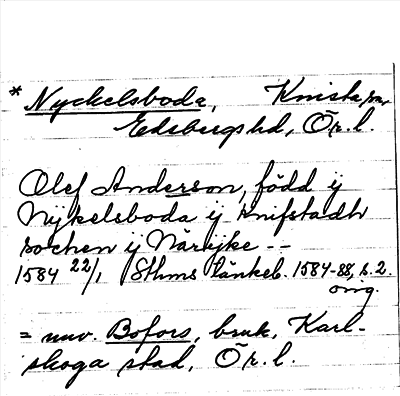 * Nyckelsboda, Knista sn,
Edsbergs hd, Ör. l.
Olef Anderson, född ij
Nykelsboda ij Knifstadh
sochen ij Närijke --
1584 22/1 Sthms tänkeb. 1584-88, s. 2.
omg.
= nuv. Bofors, bruk, Karl-
skoga stad, Ör. l.